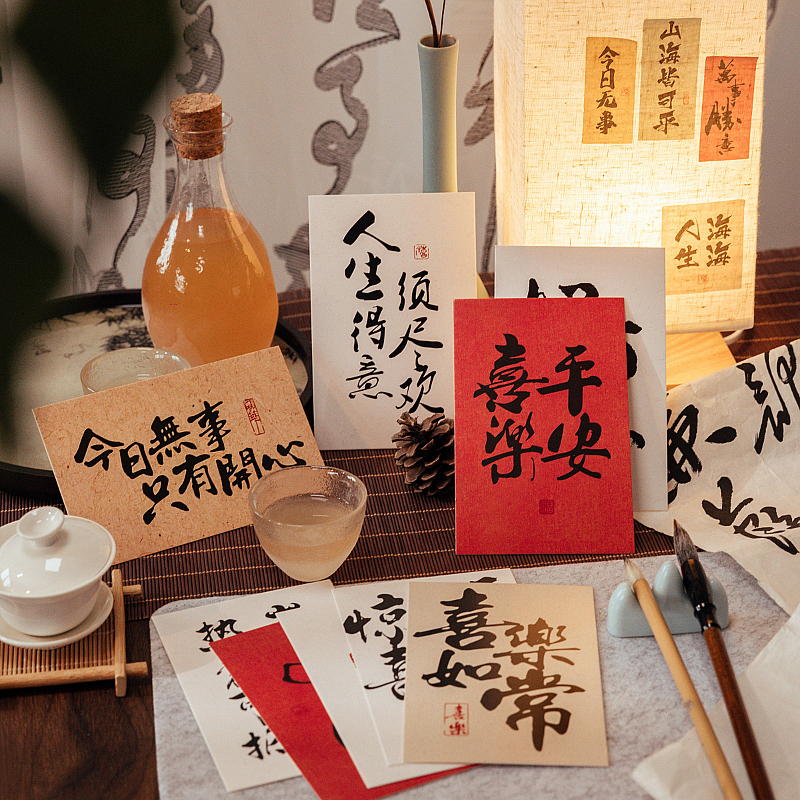 今日无事
山海皆可平
萬事勝意
海海
人生
人生得意
须尽欢
平安
喜樂
今日無事
只有開心
惊喜
喜樂
如常
喜樂